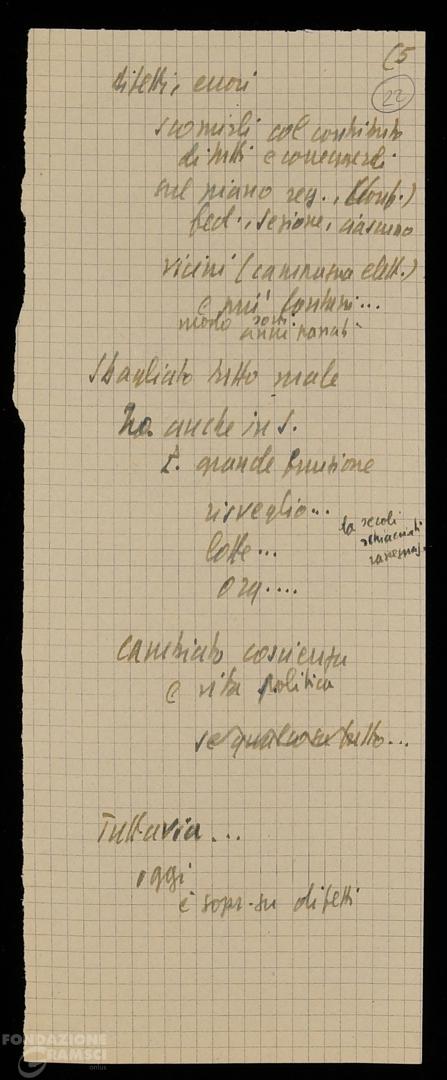 (5
22
difetti, errori
scoprirli col contributo
di tutti e correggerli
sul piano reg., (Conf.)
fed., sezione, ciascuno
vicini (campagna elett.)
e più lontani...
modo
anni passati
Sbagliato tutto male
No. anche in S.
P. grande funzione
risveglio...
da secoli
schiacciati
rassegnaz.
lotte...
org....
cambiato coscienza
e vita politica
se qualcosa fatto...
Tuttavia...
oggi
è sopr. su difetti
FONDAZIONE
GRAMSCI
onlus